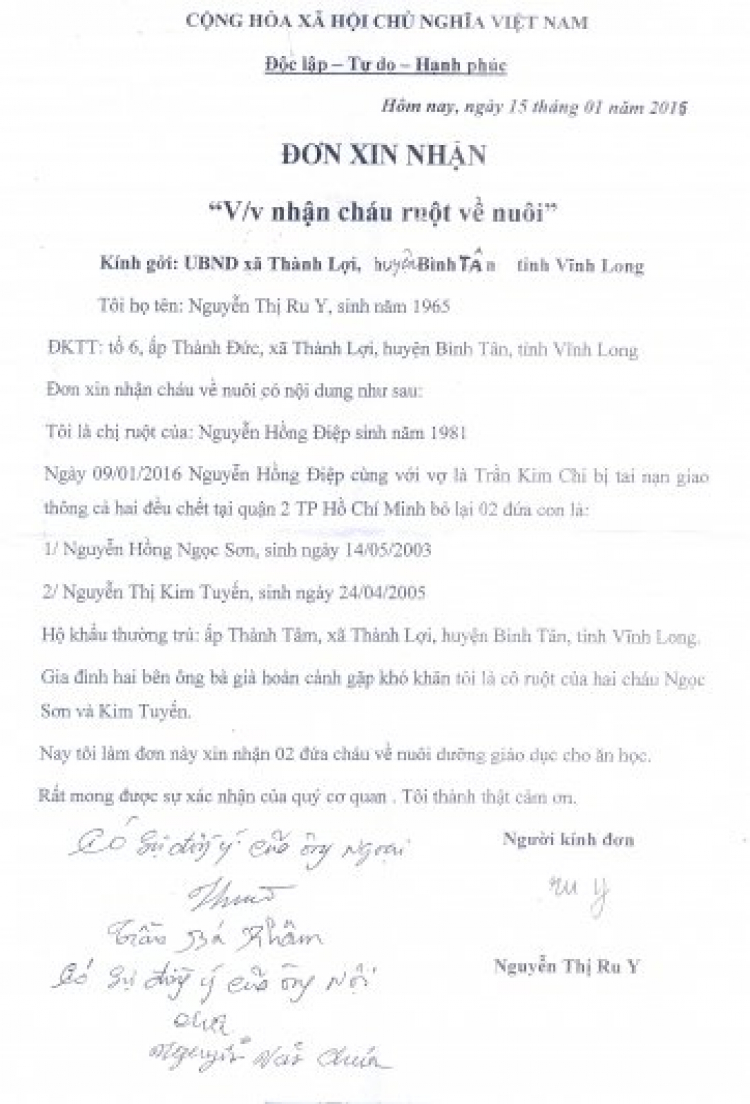 CỘNG HÒA XÃ HỘI CHỦ NGHĨA VIỆT NAM
Độc lập – Tự do – Hạnh phúc
Hôm nay, ngày 15 tháng 01 năm 2016
ĐƠN XIN NHẬN
“V/v nhận cháu ruột về nuôi”
Kính gởi: UBND xã Thành Lợi, huyện Bình Tân tỉnh Vĩnh Long
Tôi họ tên: Nguyễn Thị Ru Y, sinh năm 1965
ĐKTT: tổ 6, ấp Thành Đức, xã Thành Lợi, huyện Bình Tân, tỉnh Vĩnh Long
Đơn xin nhận cháu về nuôi có nội dung như sau:
Tôi là chị ruột của: Nguyễn Hồng Điệp sinh năm 1981
Ngày 09/01/2016 Nguyễn Hồng Điệp cùng với vợ là Trần Kim Chi bị tai nạn giao
thông cả hai đều chết tại quận 2 TP Hồ Chí Minh bỏ lại 02 đứa con là:
1/ Nguyễn Hồng Ngọc Sơn, sinh ngày 14/05/2003
2/ Nguyễn Thị Kim Tuyến, sinh ngày 24/04/2005
Hộ khẩu thường trú: ấp Thành Tâm, xã Thành Lợi, huyện Bình Tân, tỉnh Vĩnh Long.
Gia đình hai bên ông bà già hoàn cảnh gặp khó khăn tôi là cô ruột của hai cháu Ngọc
Sơn và Kim Tuyến.
Nay tôi làm đơn này xin nhận 02 đứa cháu về nuôi dưỡng giáo dục cho ăn học.
Rất mong được sự xác nhận của quý cơ quan . Tôi thành thật cảm ơn.
Có sự đồng ý của ông Ngoại
Người kính đơn
Ru Y
Trần Bá
Nguyễn Thị Ru Y
Có sự đồng ý của ông Nội
Nguyễn Văn